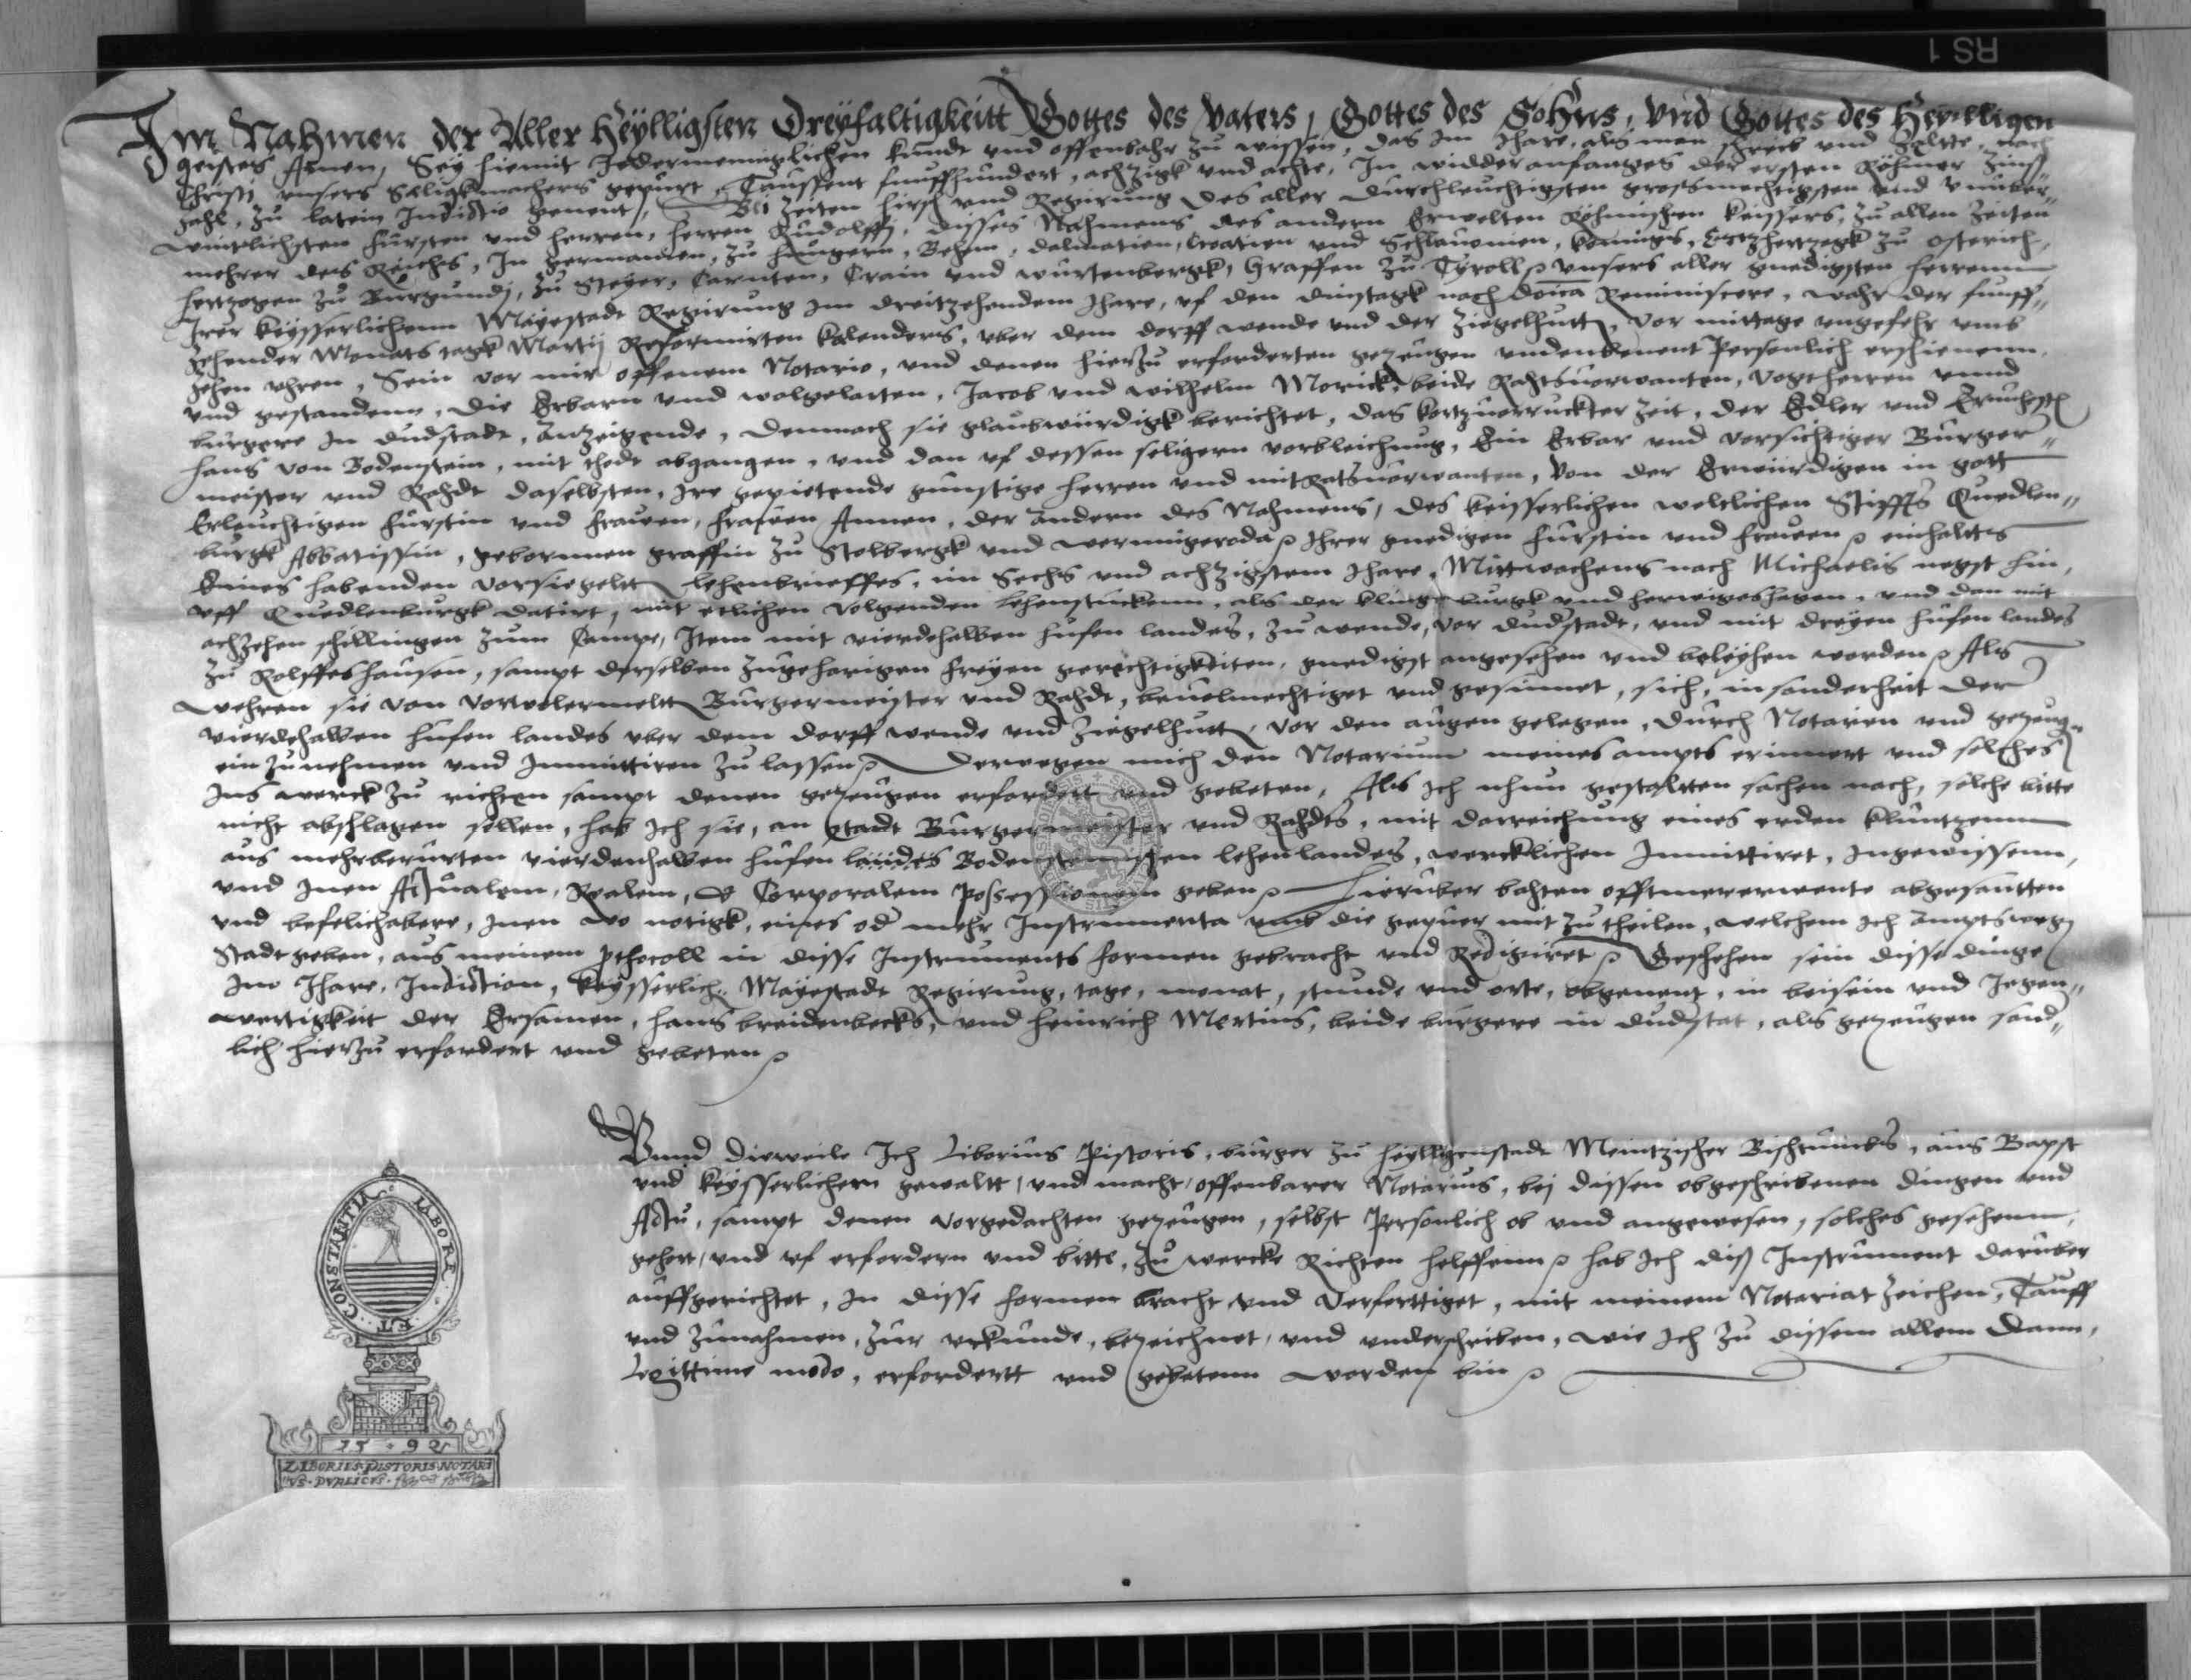 RS 1
Im Nahmen der Aller Heÿlligsten Dreÿfaltigkeitt Gottes des Vaters, Gottes des Sohns, Vnd Gottes des Heÿlligen
geistes Amen, Seÿ hiemit Jedermenniglichen kundt vnd offenbahr zu wissen, das Im Jhare, als man schreib vnd zeltte, nach
Christi vnsers Seligkmachers gepurt, Taussent funffhundert, achzigk vnd achte, In widderanfanges der ersten Röhmer Zins
zahl, zu latein Indictio genent, Bei Zeiten hirsch vnd Regirung des aller durchleuchtigsten grossmechtigsten vnd vnuber„
wintlichsten fursten vnd herren, herren Rudolffs, disses Nahmens des andern Erwelten Röhmischen keissers, zu allen Zeiten
mehrer des Reichs, In germanien, zu hungern, Behm, dalmatien, Croatien vnd Schlauonien, konniges, Ertzhertzogk zu osterich,
hertzogen zu Burgundj, zu Steÿer, Carnten, Crain vnd wurtenbergk, Graffen zu Tyroll vnsers aller gnedigsten herrenn
Irer keÿsserlichenn Maÿestadt Regirung im dreitzehendem Jhare, vf den dinstagk nach doīca Reminiscere, wahr der funff„
zehender Monats tagk Martij Reformirten kalenders, vber dem dorff wende vnd der Ziegelhutt, vor mittage vngefehr vmb
zehen vhren, Sein vor mir offenem Notario, vnd denen hierzu erforderten gezeugen vndenbenent Personlich erschienenn,
vnd gestandenn, die Erbarn vnd wolgelarten, Jacob vnd wilhelm Morick, beide Rahtsuorwanten, Vogtherren vnnd
burgere in dudstadt, Anzeigende, Demnach sie glaubwurdigk berichtet, das kortzuorruckter zeit, der Edler vnd Ernuhester
hans von Bodenstein, mit thodt abgangen, vnd dan vf dessen seligern vorbleichung, Ein Erbar vnd vorsichtiger Burger„
meister vnd Rahdt daselbsten, Ire gepietende gunstige herren vnd mitRatsuorwanten, Von der Erwurdigen in gott
Erleuchtigen furstin vnd frawen, frawen Annen, der andern des Nahmens, des keisserlichen weltlichen Stiffts Quedlen„
burgk Abbatissin, gebornnen graffin zu Stolbergk vnd wernnigeroda Ihrer gnedigen furstin vnd frawen einhaltts
Eines habenden vorsiegeltt lehenbrieffes, im Sechs vnd achzigstem Jhare, Mittwachens nach Michaelis negst hin,
vff Quedlenburgk datirt, mit etlichen volgenden lehenstuckenn, als der klingeburgk vnd herwigeshagen, vnd dan mit
achzehen schillingen zum Campe, Item mit vierdehalben hufen landes, zu wende, vor dudstadt, vnd mit dreyen hufen landes
zu Rolffeshausen, sampt derselben zugehorigen freyen gerechtigkeiten, gnedigst angesehen vnd beleyhen worden Als
wehren sie von vorwolermeltt Burgermeister vnd Rahdt, beuolmechtiget vnd gesinnet, sich, insonderheit der
vierdehalben hufen landes vber dem dorff wende vnd Ziegelhutt, vor den augen gelegen, durch Notarien vnd gezeug„
ein zu nehmen vnd Immittiren zu lassen Derwegen mich den Notarium meines ampts erinnert vnd solches
Ins werck zu richten sampt denen gezeugen erfordert vnd gebeten, Als Ich nhun gestaltten sachen nach, solche bitte
nicht abschlagen sollen, hab Ich sie, an stadt Burgermeister vnd Rahdts, mit darreichung eines erden kluntzenn
aus mehrberurten vierdenhalben hufen landes Bodensteinischen lehenlandes, wercklichen Immittiret, Ingewissenn,
vnd Inen Actualem, Realem, & Corporalem Possessionem geben Hieruber bahten offtmererwente abgesantten
vnd befelichabere, Inen wo notigk, eines od mehr Instrumenta vmb die gepuer mit zu theilen, welchem ich amptswegen
Stadt geben, aus meinem pthocoll in disse Instruments formen gebracht vnd Redigiret Geschehen sein disse dinge
Im Jhare, Indiction, keÿsserlich. Maÿestadt Regirung, tage, monat, stunde vnd orte, obgenent, in beisein vnd Jegen„
wertigkeit der Ersamen, hans breidenbecks, vnd heinrich Mertins, beide burgere in dudstat, als gezeugen sand„
lich hierzu erfordert vnd gebeten
Vnnd dieweile Ich Liborius Pistoris, burger zu heÿlligenstadt Meintzischer Bischtumbs, aus Bapst
vnd keÿsserlichem gewaltt, vnd macht, offenbarer Notarius, bej dissen obgeschribenen dingen vnd
Actu, sampt denen vorgedachten gezeugen, selbst Personlich ob vnd angewesen, solches gesehenn,
gehort, vnd vf erfordern vnd bitte, zu wercke Richten helffenn hab Ich diß Instrument daruber
auffgerichtet, In disse formen bracht vnd Verferttiget, mit meinem Notariat zeichen, Tauff
vnd Zunahmen, zur vrkunde, bezeichnet, vnd vnderschriben, wie Ich zu dissem allem dann,
Legittime modo, erfordertt vnd gebetenn worden bin
LABORE ET CONSTANTIA
15 92
LIBORIES PISTORIS NOTARI
VS PVBLICVS